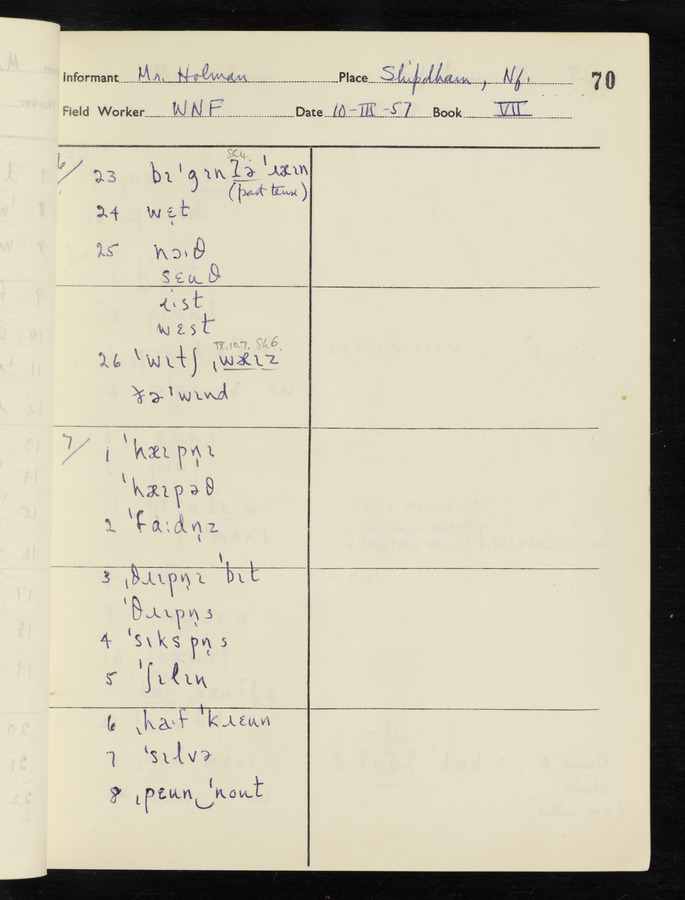 Informant Mr. Holman Place Shipdham, Nf. 70
Field Worker WNF Date 10-III-57 Book VII
6/ 23 bɪˈgɪn ʔə ˈɹæɪn
(past tense)
24 wɛ̣t
25 nɔ.ɪθ
sɛuθ
ɪ.st
wɛst
IX.10.7. §4.6.
26 ˈwɪtʃ ˌwæɪz
ðəˈwɪnd
7/ 1 ˈhæɪpn̩ɪ
ˈhæɪpəθ
2 ˈfa:dn̩z
3 ˌθɹɪpn̩ɪ ˈbɪt
ˈθɹɪpn̩s
4 ˈsɪkspn̩s
5 ˈʃɪlɪn
6 ˌha.f ˈkɹɛun
7 ˈsɪlvə
8 ˌpɛun‿ˈnout